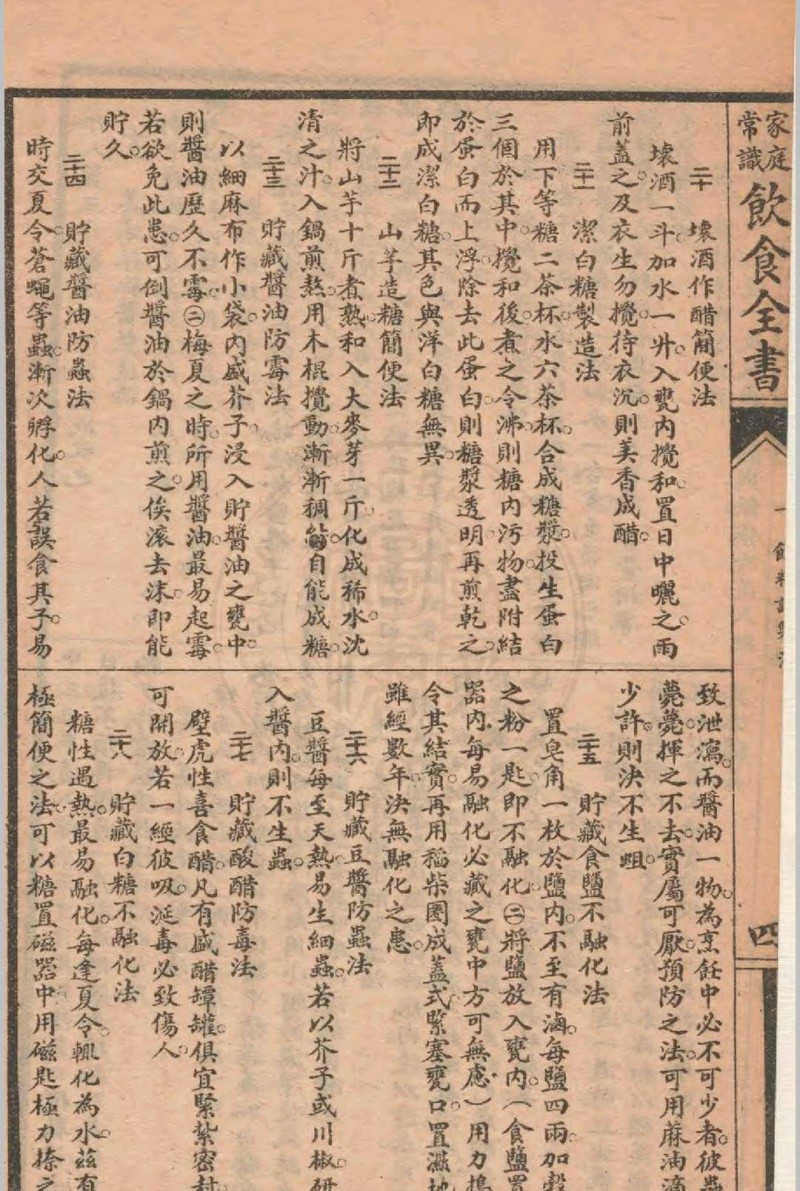 家庭
常識
飲食全書
四
二十　壞酒作醋簡便法
壞酒一斗。加水一升。入甕內攪和。置日中曬之。雨
前蓋之。及衣生勿攪。待衣沉。則美香成醋。
二十一　潔白糖製造法
用下等糖二茶杯。水六茶杯。合成糖漿。投生蛋白
三個於其中。攪和後煮之令沸。則糖內污物盡附結
於蛋白而上浮。除去此蛋白。則糖漿透明。再煎乾之。
即成潔白糖。其色與洋白糖無異。
二十二　山芋造糖簡便法
將山芋十斤煮熟。和入大麥芽一斤。化成稀水。沈
清之汁。入鍋煎熬。用木棍攪動。漸漸稠黏。自能成糖。
二十三　貯藏醬油防霉法
以細麻布作小袋。內盛芥子。浸入貯醬油之甕中。
則醬油歷久不霉。㊁梅夏之時。所用醬油。最易起霉。
若欲免此患。可倒醬油於鍋內煎之。俟滾去沫。即能
貯久。
二十四　貯藏醬油防蟲法
時交夏令。蒼蠅等蟲。漸次孵化。人若誤食其子。易
致泄瀉。而醬油一物。為烹飪中必不可少者。彼蟲
薨薨。揮之不去。實屬可厭。預防之法。可用蔴油滴
少許。則決不生蛆。
二十五　貯藏食鹽不融化法
置皂角一枚於鹽內。不至有滷。每鹽四兩。加穀
之粉一匙。即不融化。㊁將鹽放入甕內。（食鹽置
器內。每易融化。必藏之甕中。方可無慮）用力搗
令其結實。再用稻柴圈成蓋式。緊塞甕口。置濕地
雖經數年。決無融化之患。
二十六　貯藏豆醬防蟲法
豆醬每至天熱。易生細蟲。若以芥子或川椒研
入醬內。則不生蟲。
二十七　貯藏酸醋防毒法
壁虎性喜食醋。凡有盛醋罈罐。俱宜緊紮密封
可開放。若一經彼吸。涎毒必致傷人。
二十八　貯藏白糖不融化法
糖性遇熱。最易融化。每逢夏令。輒化為水。茲有
極簡便之法。可以糖置磁器中。用磁匙極力捺之